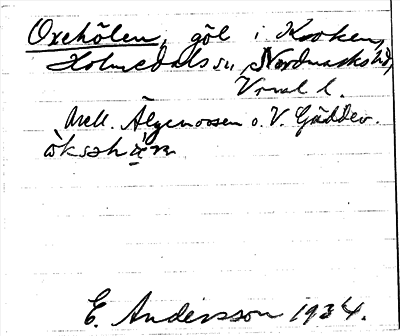 Oxehölen, göl i Kroken,
Holmedals sn, Nordmarks hd,
Vrml l.
Mell. Älgmossen o. V. Gäddev.
E. Andersson 1934.